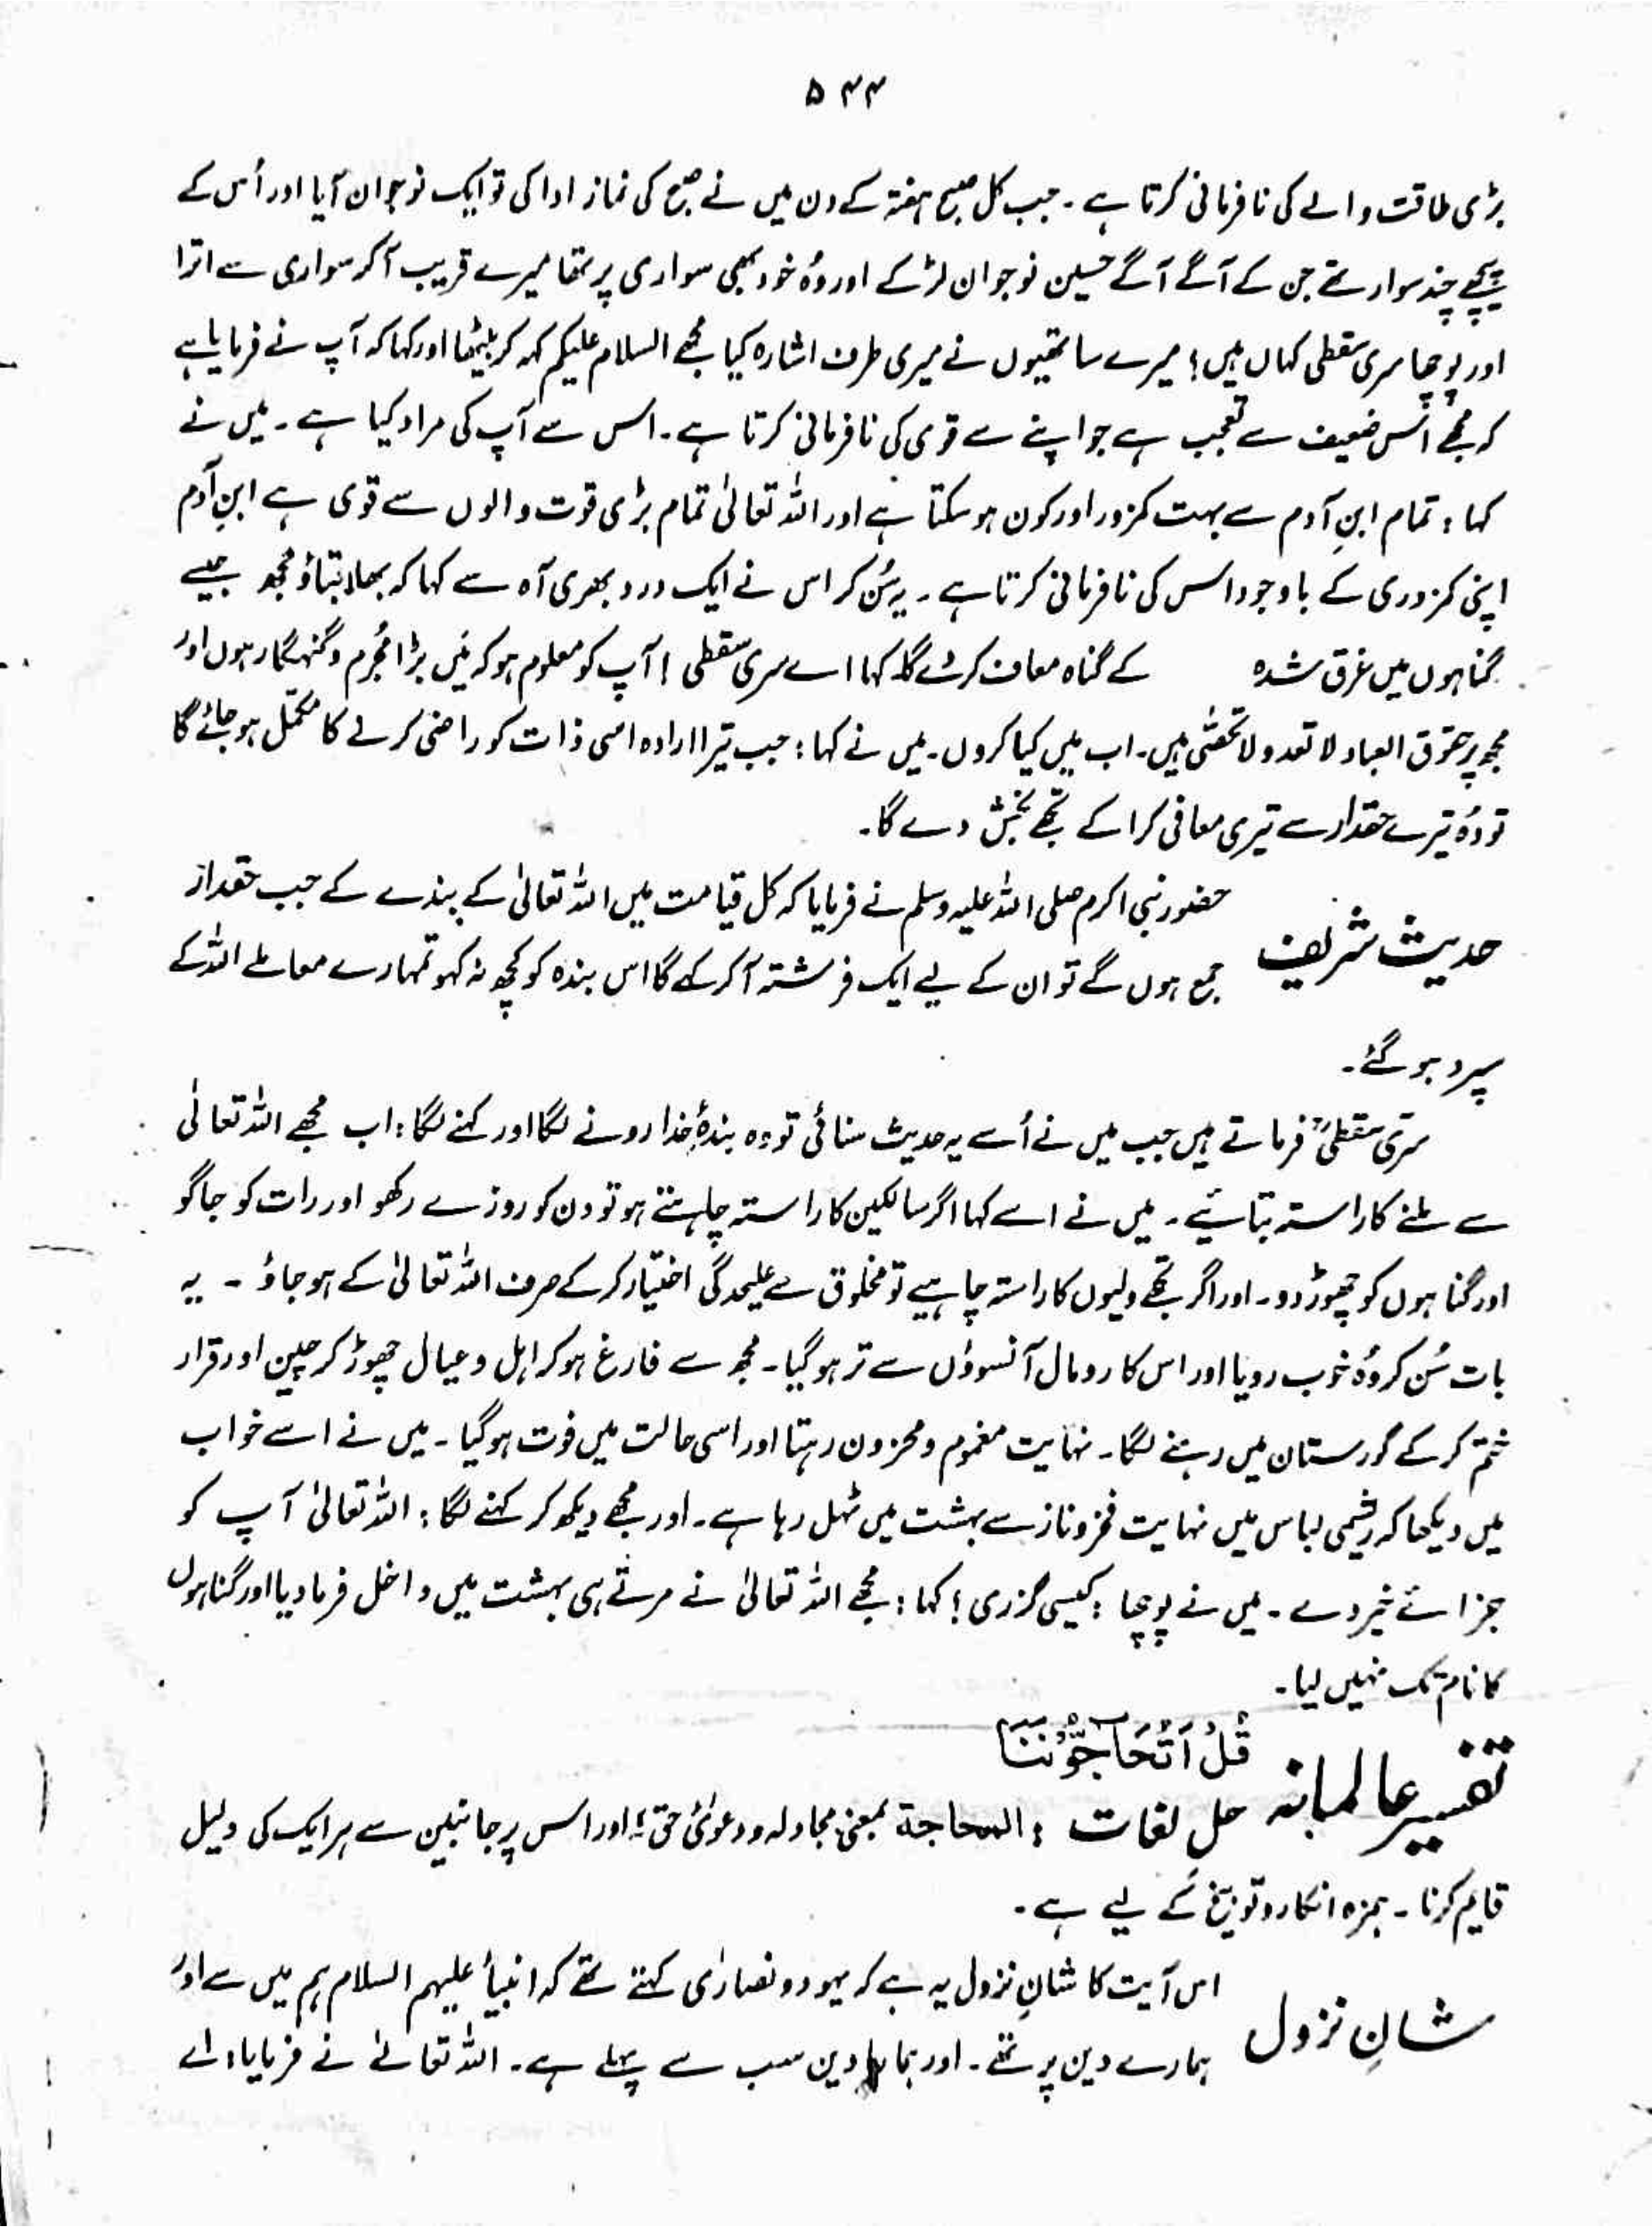 ۵۴۴
بڑی طاقت والے کی نافرمانی کرتا ہے۔ جب کل صبح ہفتہ کے دن میں نے صبح کی نماز ادا کی تو ایک نوجوان آیا اور اُس کے
پیچھے چند سوار تھے جن کے آگے آگے حسین نوجوان لڑکے اور وُہ خود بھی سواری پر تھا میرے قریب آکر سواری سے اترا
اور پوچھا سری سقطی کہاں ہیں؟ میرے ساتھیوں نے میری طرف اشارہ کیا مجھے السلام علیکم کہہ کر بیٹھا اور کہا کہ آپ نے فرمایا ہے
کہ مجھے اُس ضعیف سے تعجب ہے جو اپنے سے قوی کی نافرمانی کرتا ہے۔ اس سے آپ کی مراد کیا ہے۔ میں نے
کہا : تمام ابنِ آدم سے بہت کمزور اور کون ہوسکتا ہے اور اللہ تعالیٰ تمام بڑی قوت والوں سے قوی ہے ابنِ آدم
اپنی کمزوری کے باوجود اس کی نافرمانی کرتا ہے۔ یہ سُن کر اس نے ایک درد بھری آہ سے کہا کہ بھلا بتاؤ مُجھ جیسے
گناہوں میں غرق شدہ کے گناہ معاف کرے گا۔ کہا اے سری سقطی! آپ کو معلوم ہو کہ میَں بڑا مُجرم و گنہگار ہوں اور
مجھ پر حقوق العباد لا تعد و لا تحصیٰ ہیں۔ اب میں کیا کروں۔ میں نے کہا : جب تیرا ارادہ اسی ذات کو راضی کرنے کا مکمّل ہو جائے گا
تو وُہ تیرے حقدار سے تیری معافی کرا کے تجھے بخش دے گا۔
حدیث شریف حضور نبی اکرم صلی اللہ علیہ وسلم نے فرمایا کہ کل قیامت میں اللہ تعالیٰ کے بندے کے جب حقدار
جمع ہوں گے تو ان کے لیے ایک فرشتہ آکر کہے گا اس بندہ کو کچھ نہ کہو تمہارے معاملے اللہ کے
سپرد ہو گئے۔
سری سقطیؒ فرماتے ہیں جب میں نے اُسے یہ حدیث سنائی تو وہ بندۂ خدا رونے لگا اور کہنے لگا : اب مجھے اللہ تعالٰی
سے ملنے کا راستہ بتائیے۔ میں نے اسے کہا اگر سالکین کا راستہ چاہتے ہو تو دن کو روزے رکھو اور رات کو جاگو
اور گناہوں کو چھوڑ دو۔ اور اگر تجھے ولیوں کا راستہ چاہیے تو مخلوق سے علیحدگی اختیار کرکے صرف اللہ تعالیٰ کے ہو جاؤ۔ یہ
بات سُن کر وُہ خوب رویا اور اس کا رومال آنسوؤں سے تر ہو گیا۔ مجھ سے فارغ ہو کر اہل و عیال چھوڑ کر چین اور قرار
ختم کرکے گورستان میں رہنے لگا۔ نہایت مغموم و محزون رہتا اور اسی حالت میں فوت ہو گیا۔ میں نے اسے خواب
میں دیکھا کہ ریشمی لباس میں نہایت فخر و ناز سے بہشت میں ٹہل رہا ہے۔ اور مجھے دیکھ کر کہنے لگا : اللہ تعالیٰ آپ کو
جزائے خیر دے۔ میں نے پوچھا : کیسی گزری؟ کہا : مجھے اللہ تعالیٰ نے مرتے ہی بہشت میں داخل فرما دیا اور گناہوں
کا نام تک نہیں لیا۔
تفسیر عالمانہ قُلْ اَتُحَآجُّوْنَنَا
حل لغات : المحاجة بمعنی مجادلہ و دعوئ حق ؛ اور اس پر جانبین سے ہر ایک کی دلیل
قایم کرنا۔ ہمزہ انکار و توبیخ کے لیے ہے۔
شانِ نزول اس آیت کا شانِ نزول یہ ہے کہ یہود و نصارٰی کہتے تھے کہ انبیأ علیہم السلام ہم میں سے اور
ہمارے دین پر تھے۔ اور ہمارا دین سب سے پہلے ہے۔ اللہ تعالےٰ نے فرمایا، اے